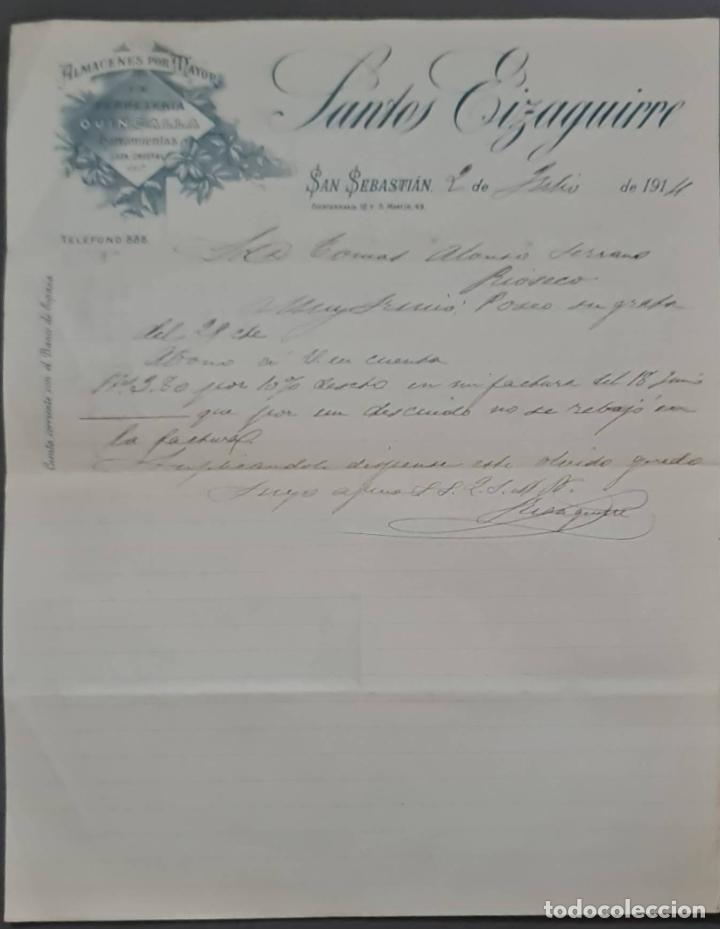 ALMACENES POR MAYOR
DE
FERRETERÍA
QUINCALLA
Herramientas
LOZA, CRISTAL
Santos Eizaguirre
SAN SEBASTIÁN, 2 de Julio de 1914
FUENTERRABÍA 12 Y S. MARTÍN, 49.
TELÉFONO 888.
Cuenta corriente con el Banco de España
Sr. D. Tomas Alonso Serrano
Rioseco
Muy Sr. mio: Poseo su grata
del 29 cte
Abono en V. en cuenta
Pts 3.80 por 10% descto en mi factura del 18 Junio
que por un descuido no se rebajó en
la factura
Suplicandole dispense este olvido quedo
Suyo afmo S. S. Q. S. M. B.
Eizaguirre
todocoleccion